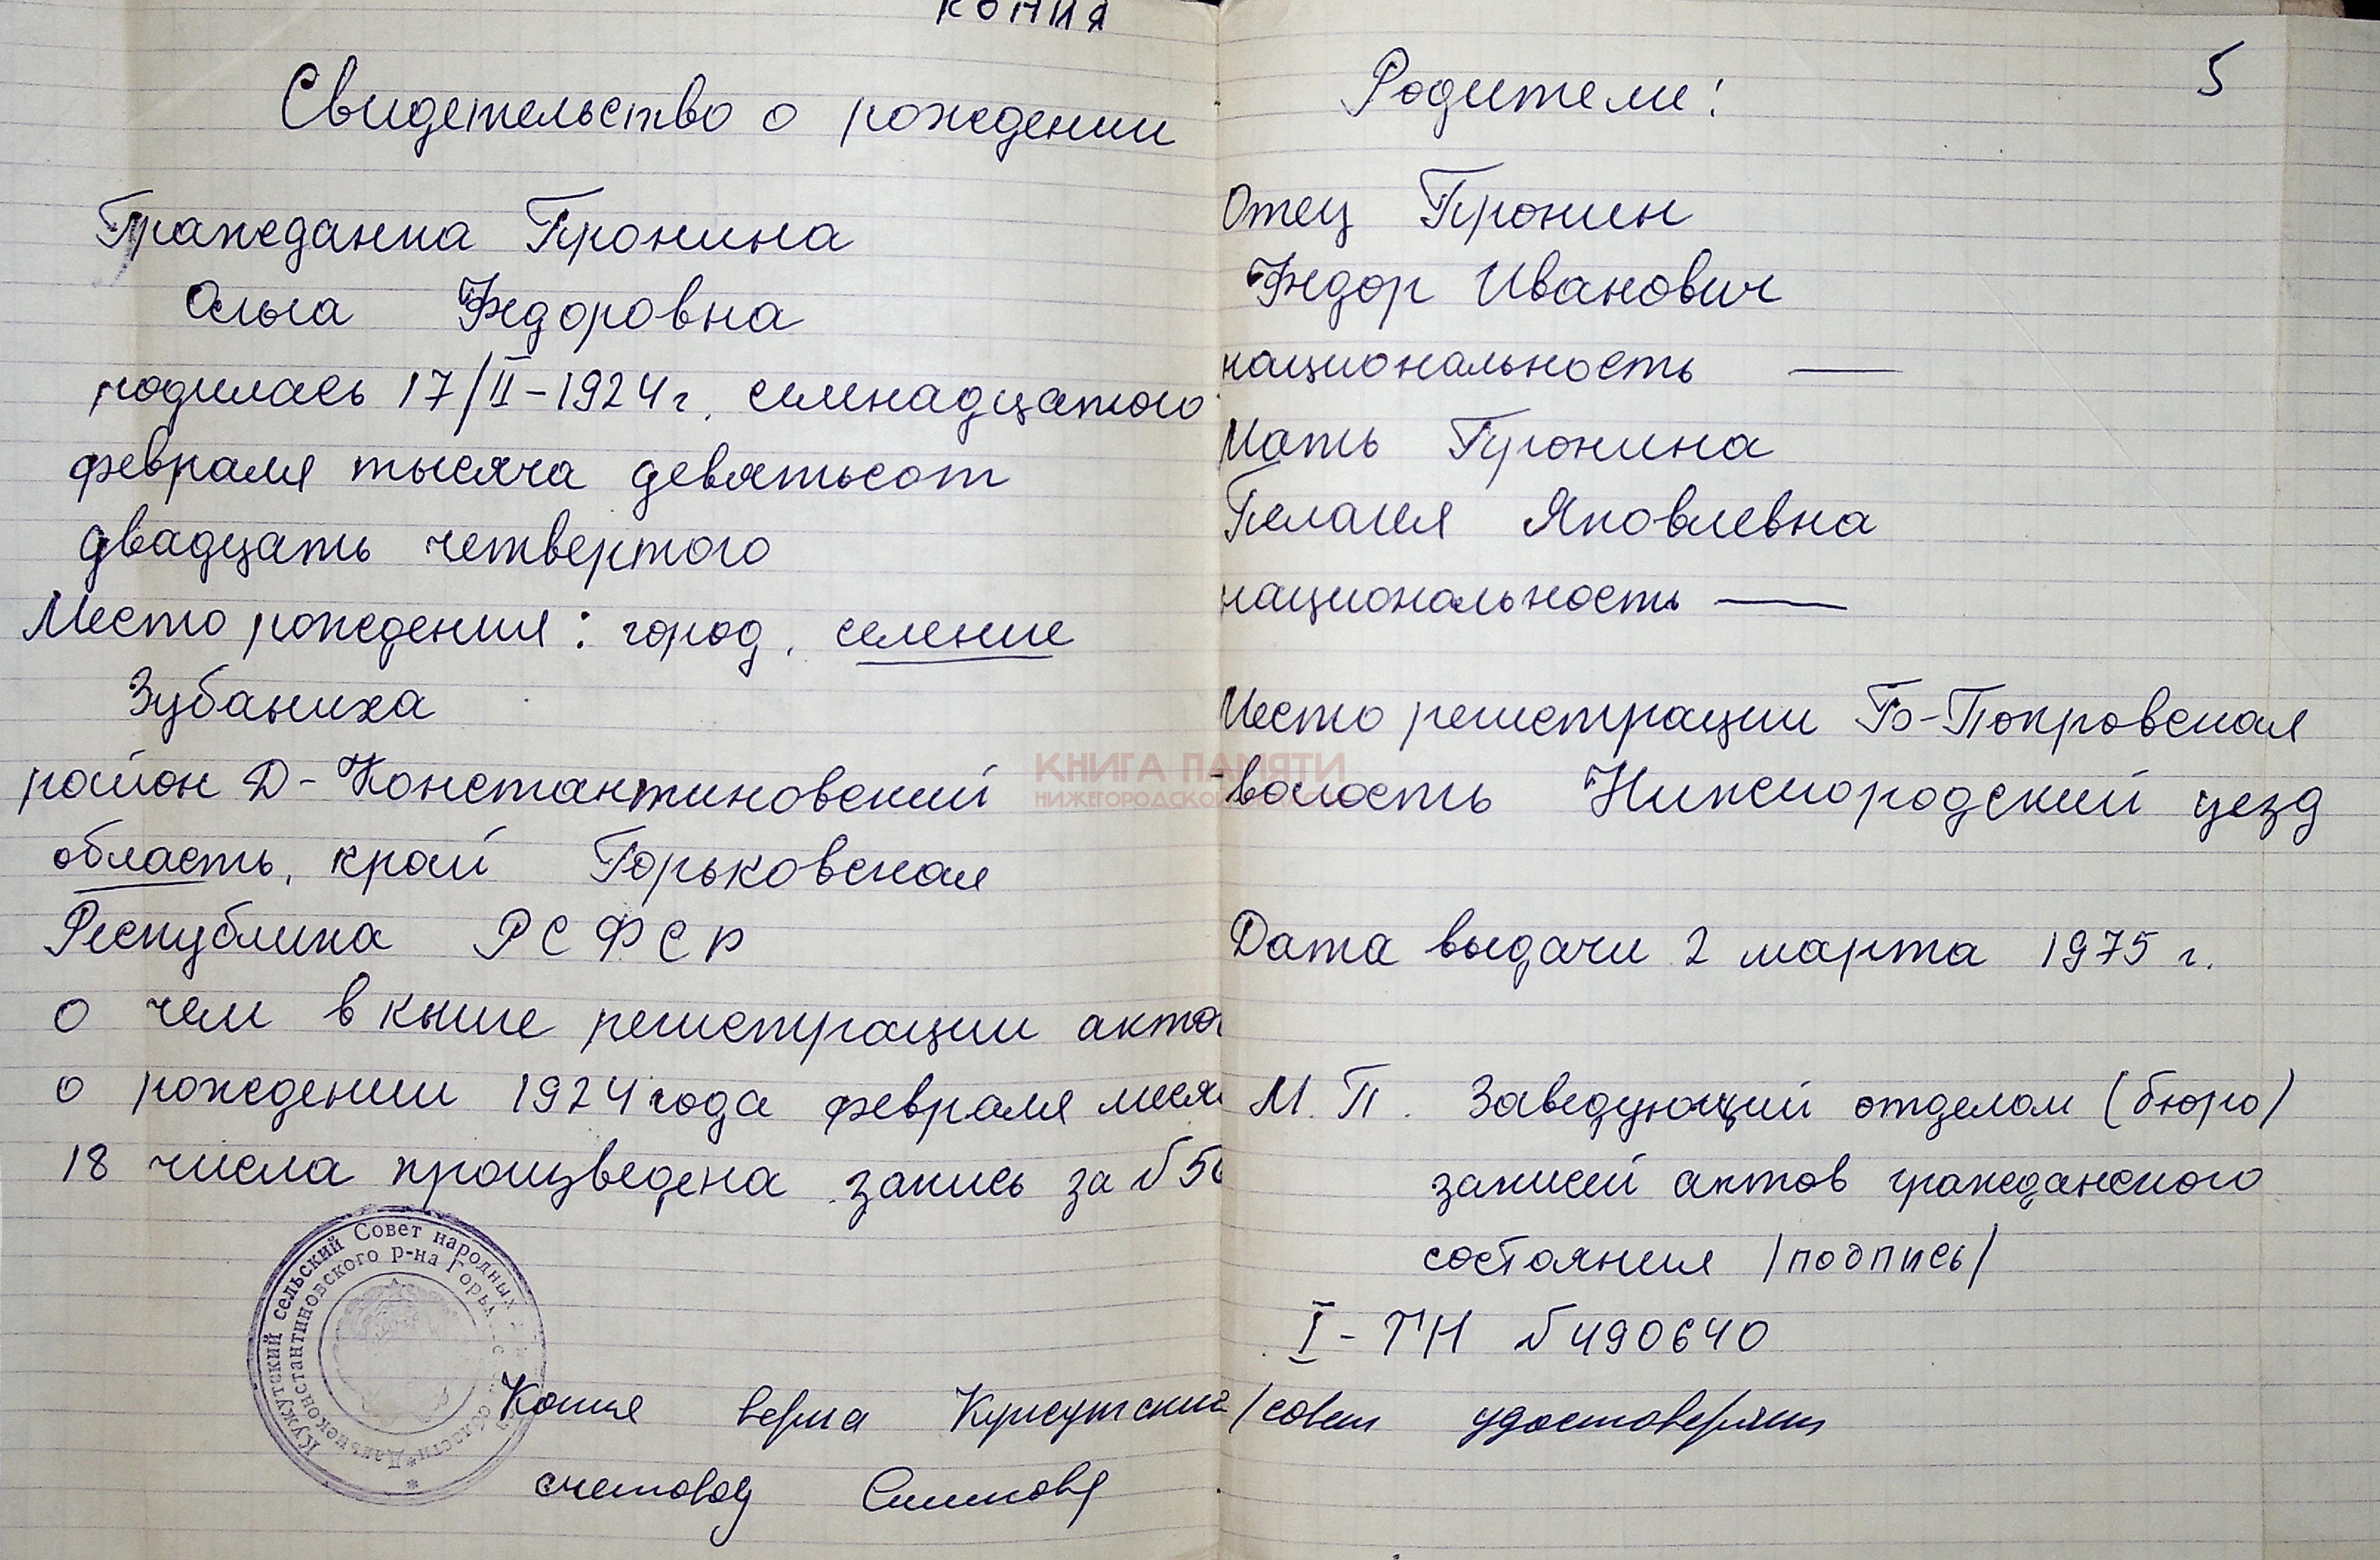 копия
Свидетельство о рождении
Гражданка Пронина
Ольга Федоровна
родилась 17/II-1924 г. семнадцатого
февраля тысяча девятьсот
двадцать четвертого
Место рождения: город, селение
Зубаниха
район Д-Константиновский
область, край Горьковская
Республика РСФСР
о чем в книге регистрации акто
о рождении 1924 года февраля меся
18 числа произведена запись за №
Кужутский сельский Совет народных
Дальнеконстантиновского р-на области
Копия верна Кужутский
счетовод
5
Родители:
Отец Пронин
Федор Иванович
национальность —
Мать Пронина
Пелагея Яковлевна
национальность —
Место регистрации Б-Покровская
волость Нижегородский уезд
Дата выдачи 2 марта 1975 г.
М.П. Заведующий отделом (бюро)
записей актов гражданского
состояния /подпись/
I-ТН №490640
/совет удостоверяет
КНИГА ПАМЯТИ
НИЖЕГОРОДСКОЙ